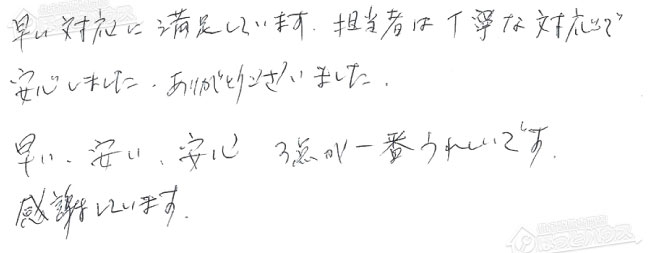 早い対応に満足しています。担当者は丁寧な対応で
安心しました。ありがとうございました。
早い、安い、安心 3点が一番うれしいです。
感謝しています。